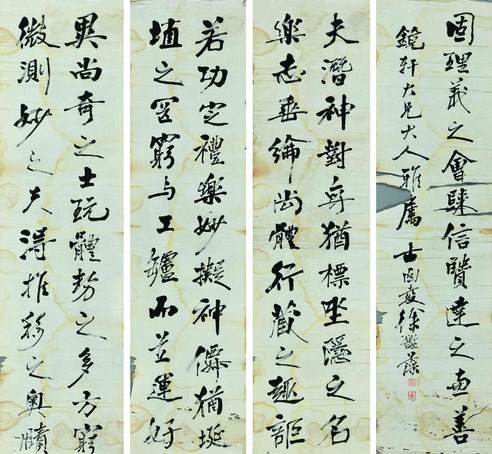 夫潛神對弈猶標坐隱之名
樂志垂綸尚體行藏之趣詎
若功定禮樂妙擬神僊猶埏
埴之罔窮与工鑪而並運好
異尚奇之士玩體勢之多方窮
微測妙之夫得推移之奧賾
固理義之會歸信賢達之兼善
鏡軒大兄大人雅屬 古 徐